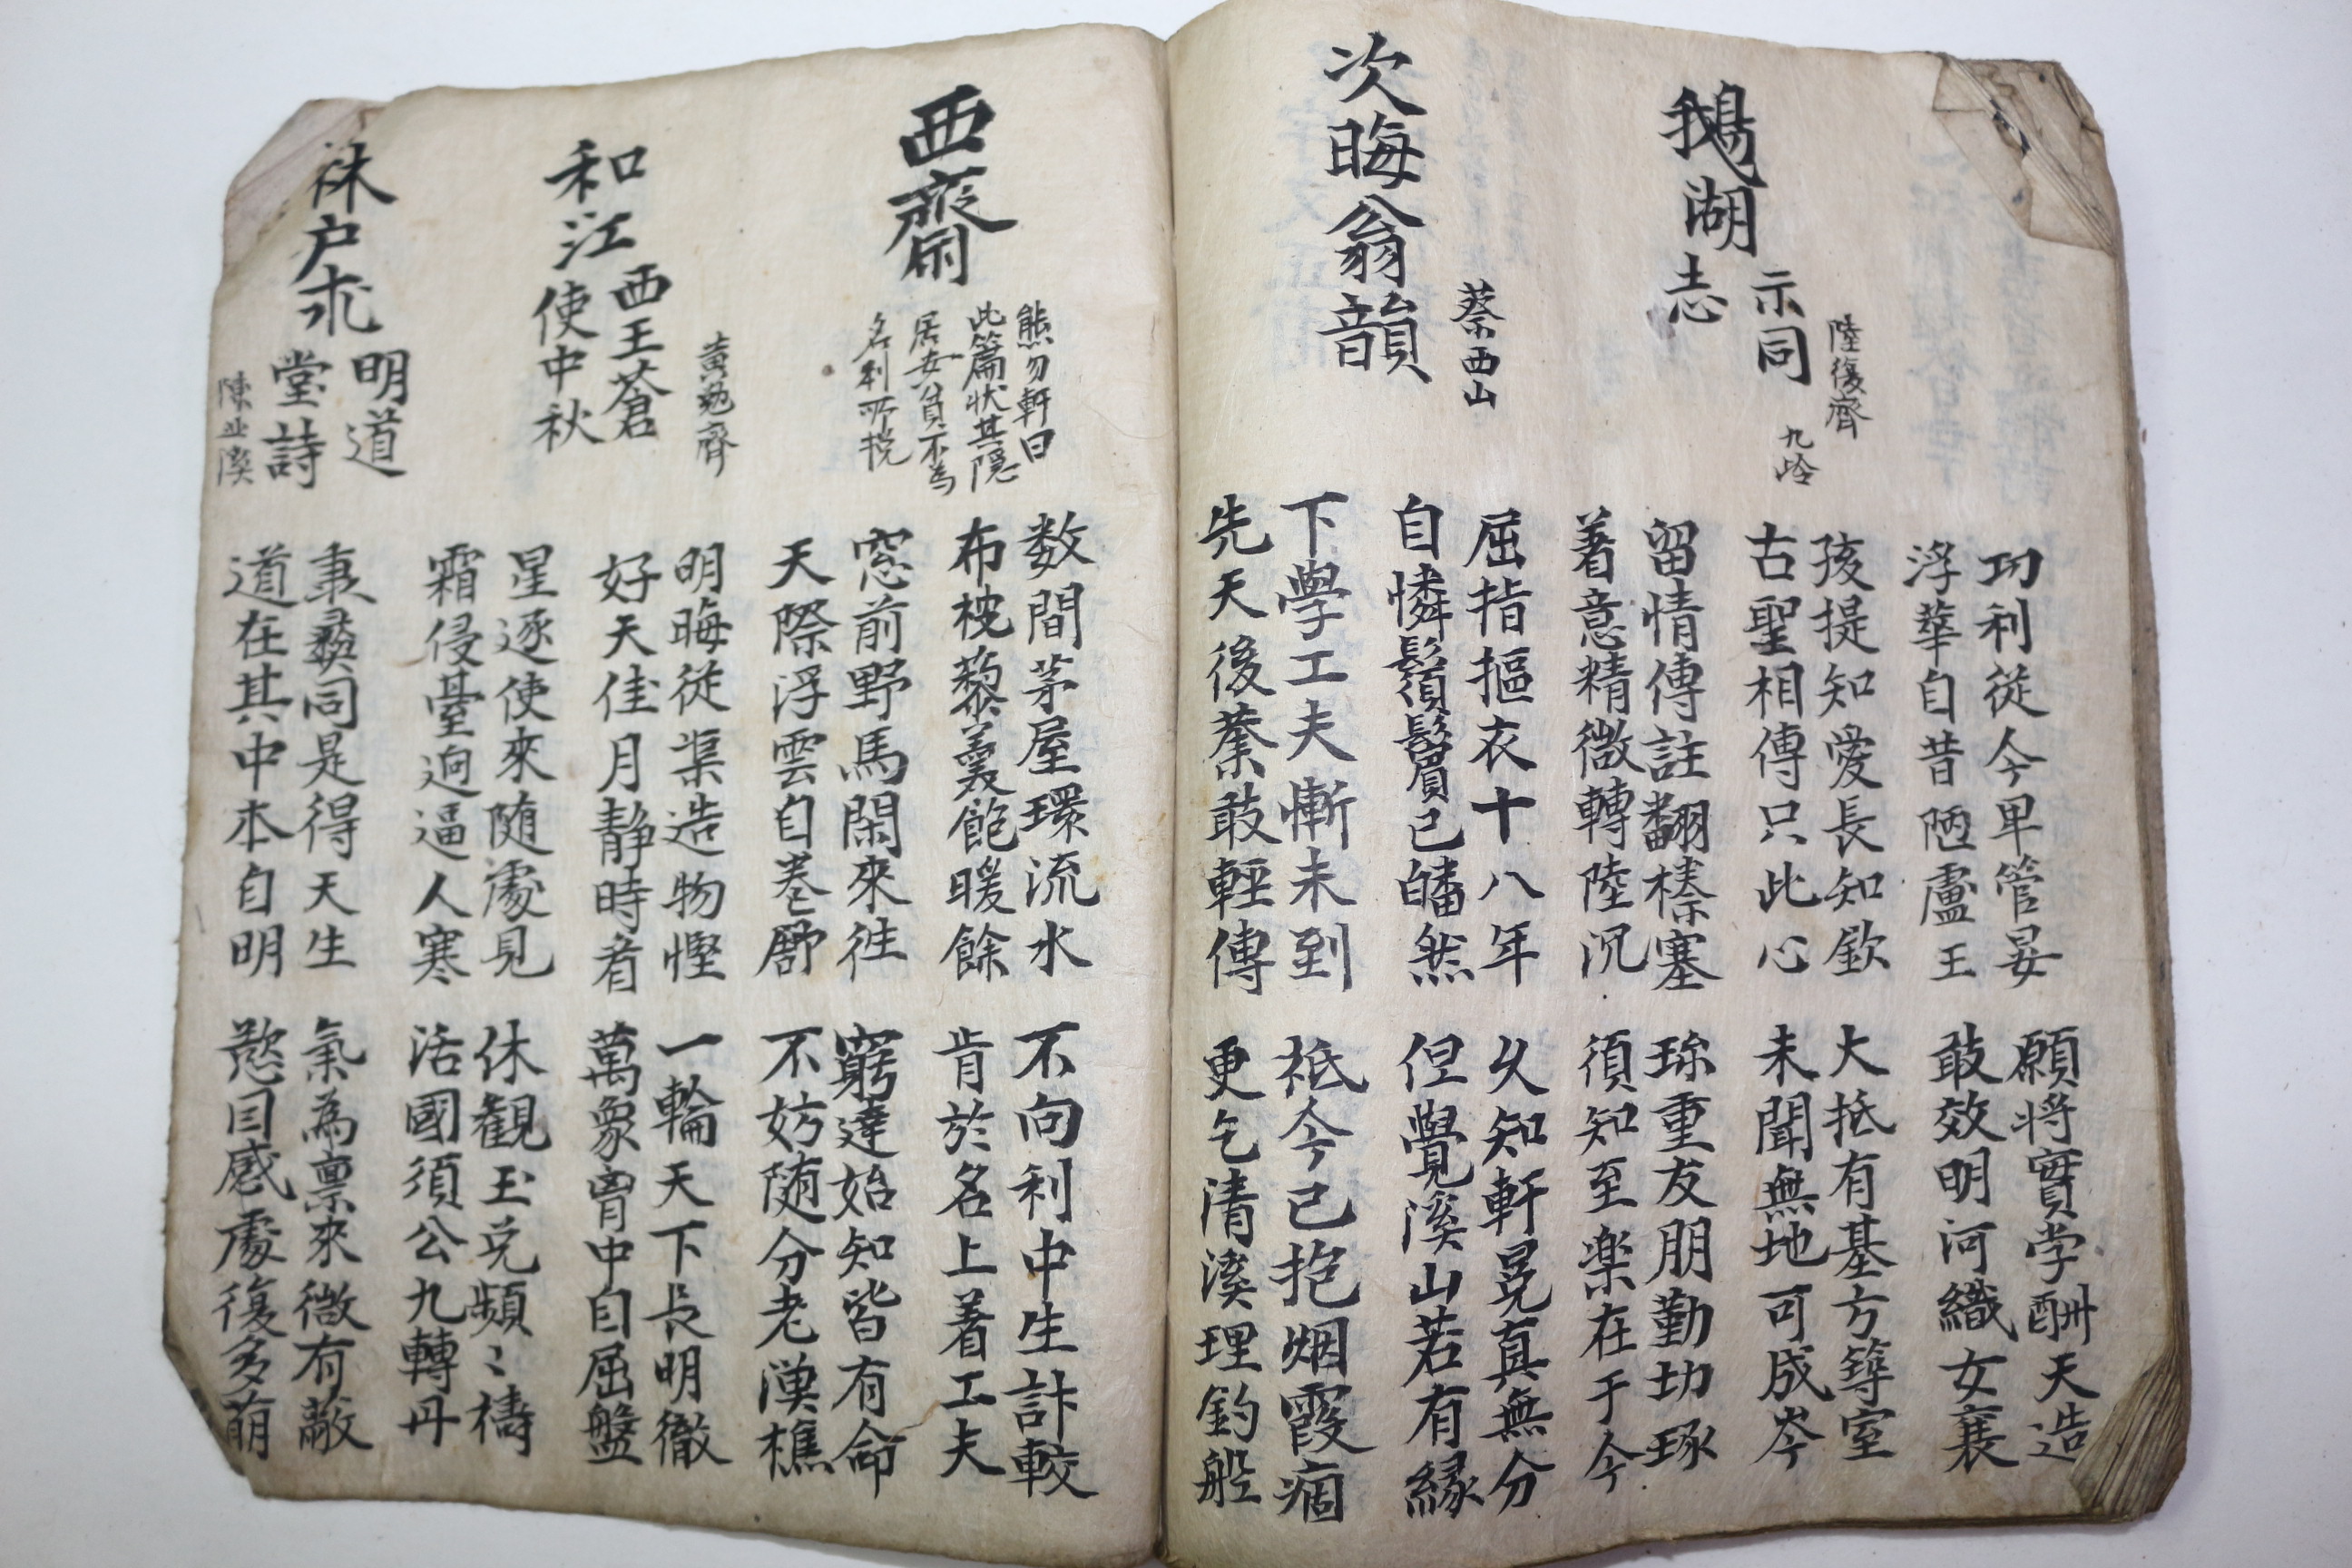 功利從今卑管晏
浮華自昔陋盧王
願將實学酬天造
敢效明河織女襄
鵝湖
示同
志
陸復齊
九岭
孩提知愛長知欽
古聖相傳只此心
大抵有基方築室
未聞無地可成岑
留情傳註翻榛塞
着意精微轉陸沉
珎重友朋勤切琢
須知至楽在于今
次晦翁韻
蔡西山
屈指摳衣十八年
自憐鬚鬢已皤然
久知軒冕真無分
但覺溪山若有緣
下學工夫慚未到
先天後蔡敢輕傳
秪今已抱烟霞痼
更乞清溪理釣船
西齋
熊勿軒曰
此篇狀其隠
居安貧不為
名利所撓
数間茅屋環流水
布被藜羹飽暖餘
不向利中生計較
肯於名上着工夫
窓前野馬閑來往
天際浮雲自卷舒
窮達始知皆有命
不妨随分老漁樵
和江
西王蒼
使中秋
黃勉齊
明晦從渠造物慳
好天佳月静時看
一輪天下長明徹
萬象胷中自屈盤
星逐使來随處見
霜侵臺逈逼人寒
休觀玉兎頻〻禱
活國須公九轉丹
袾户求
明道
堂詩
陳北溪
秉彝同是得天生
道在其中本自明
氣為禀來微有蔽
慾因感處復多萌